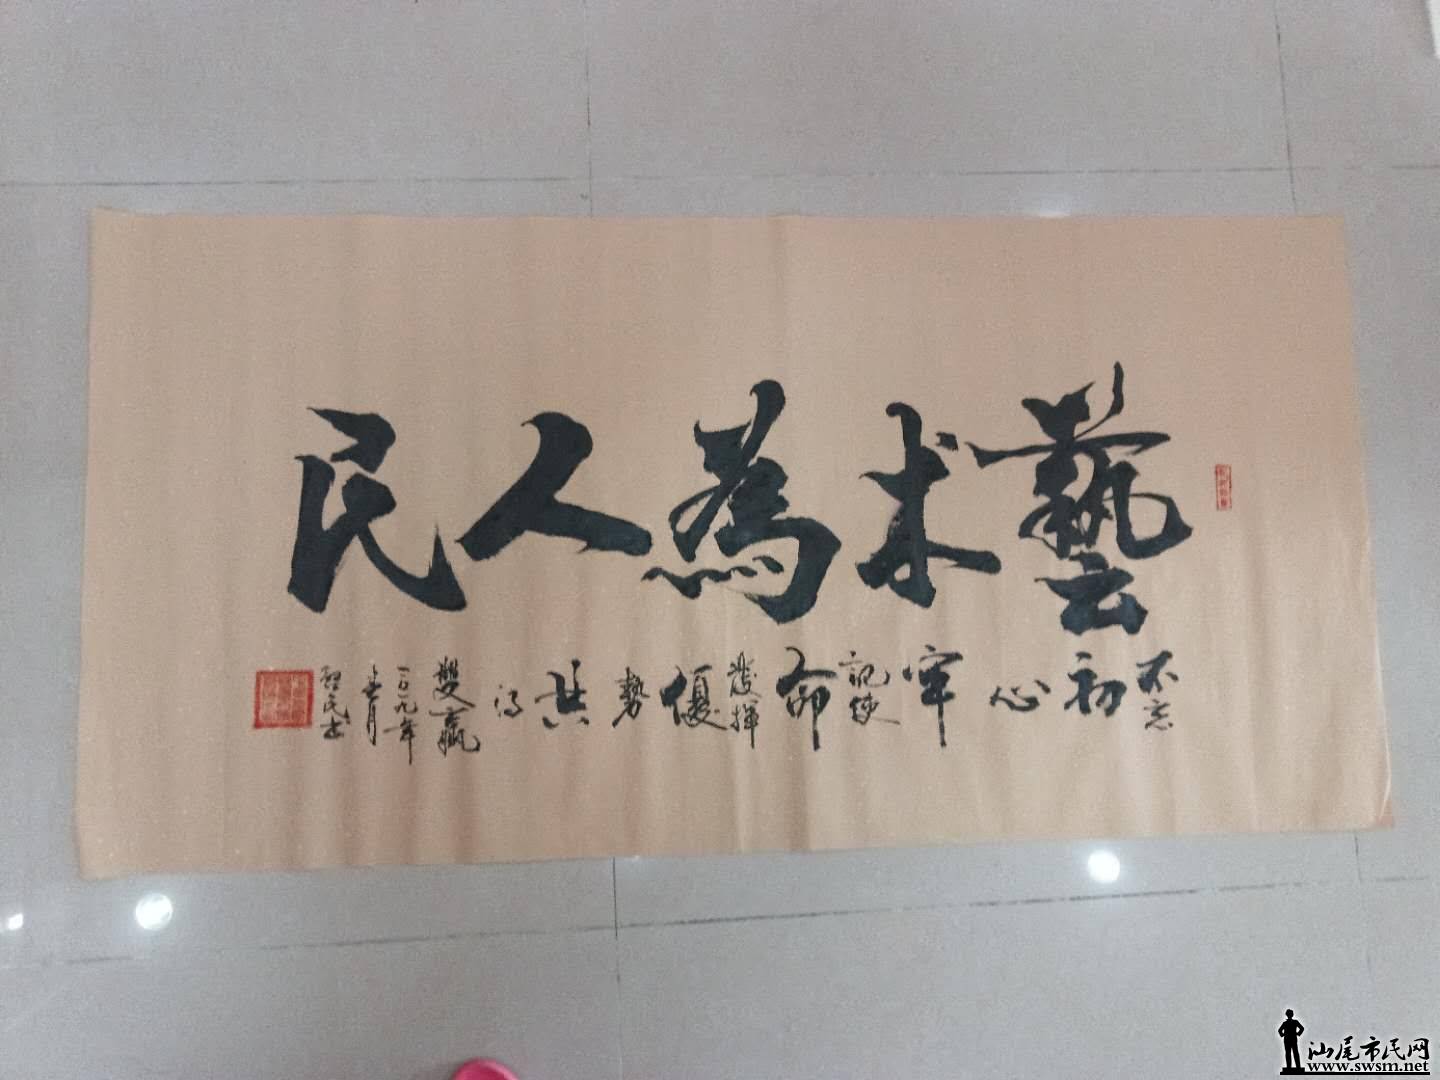 藝术為人民
不忘初心牢記使命發揮優勢共得雙贏
二〇一九年
春月
智民書
汕尾市民网
www.swsm.net